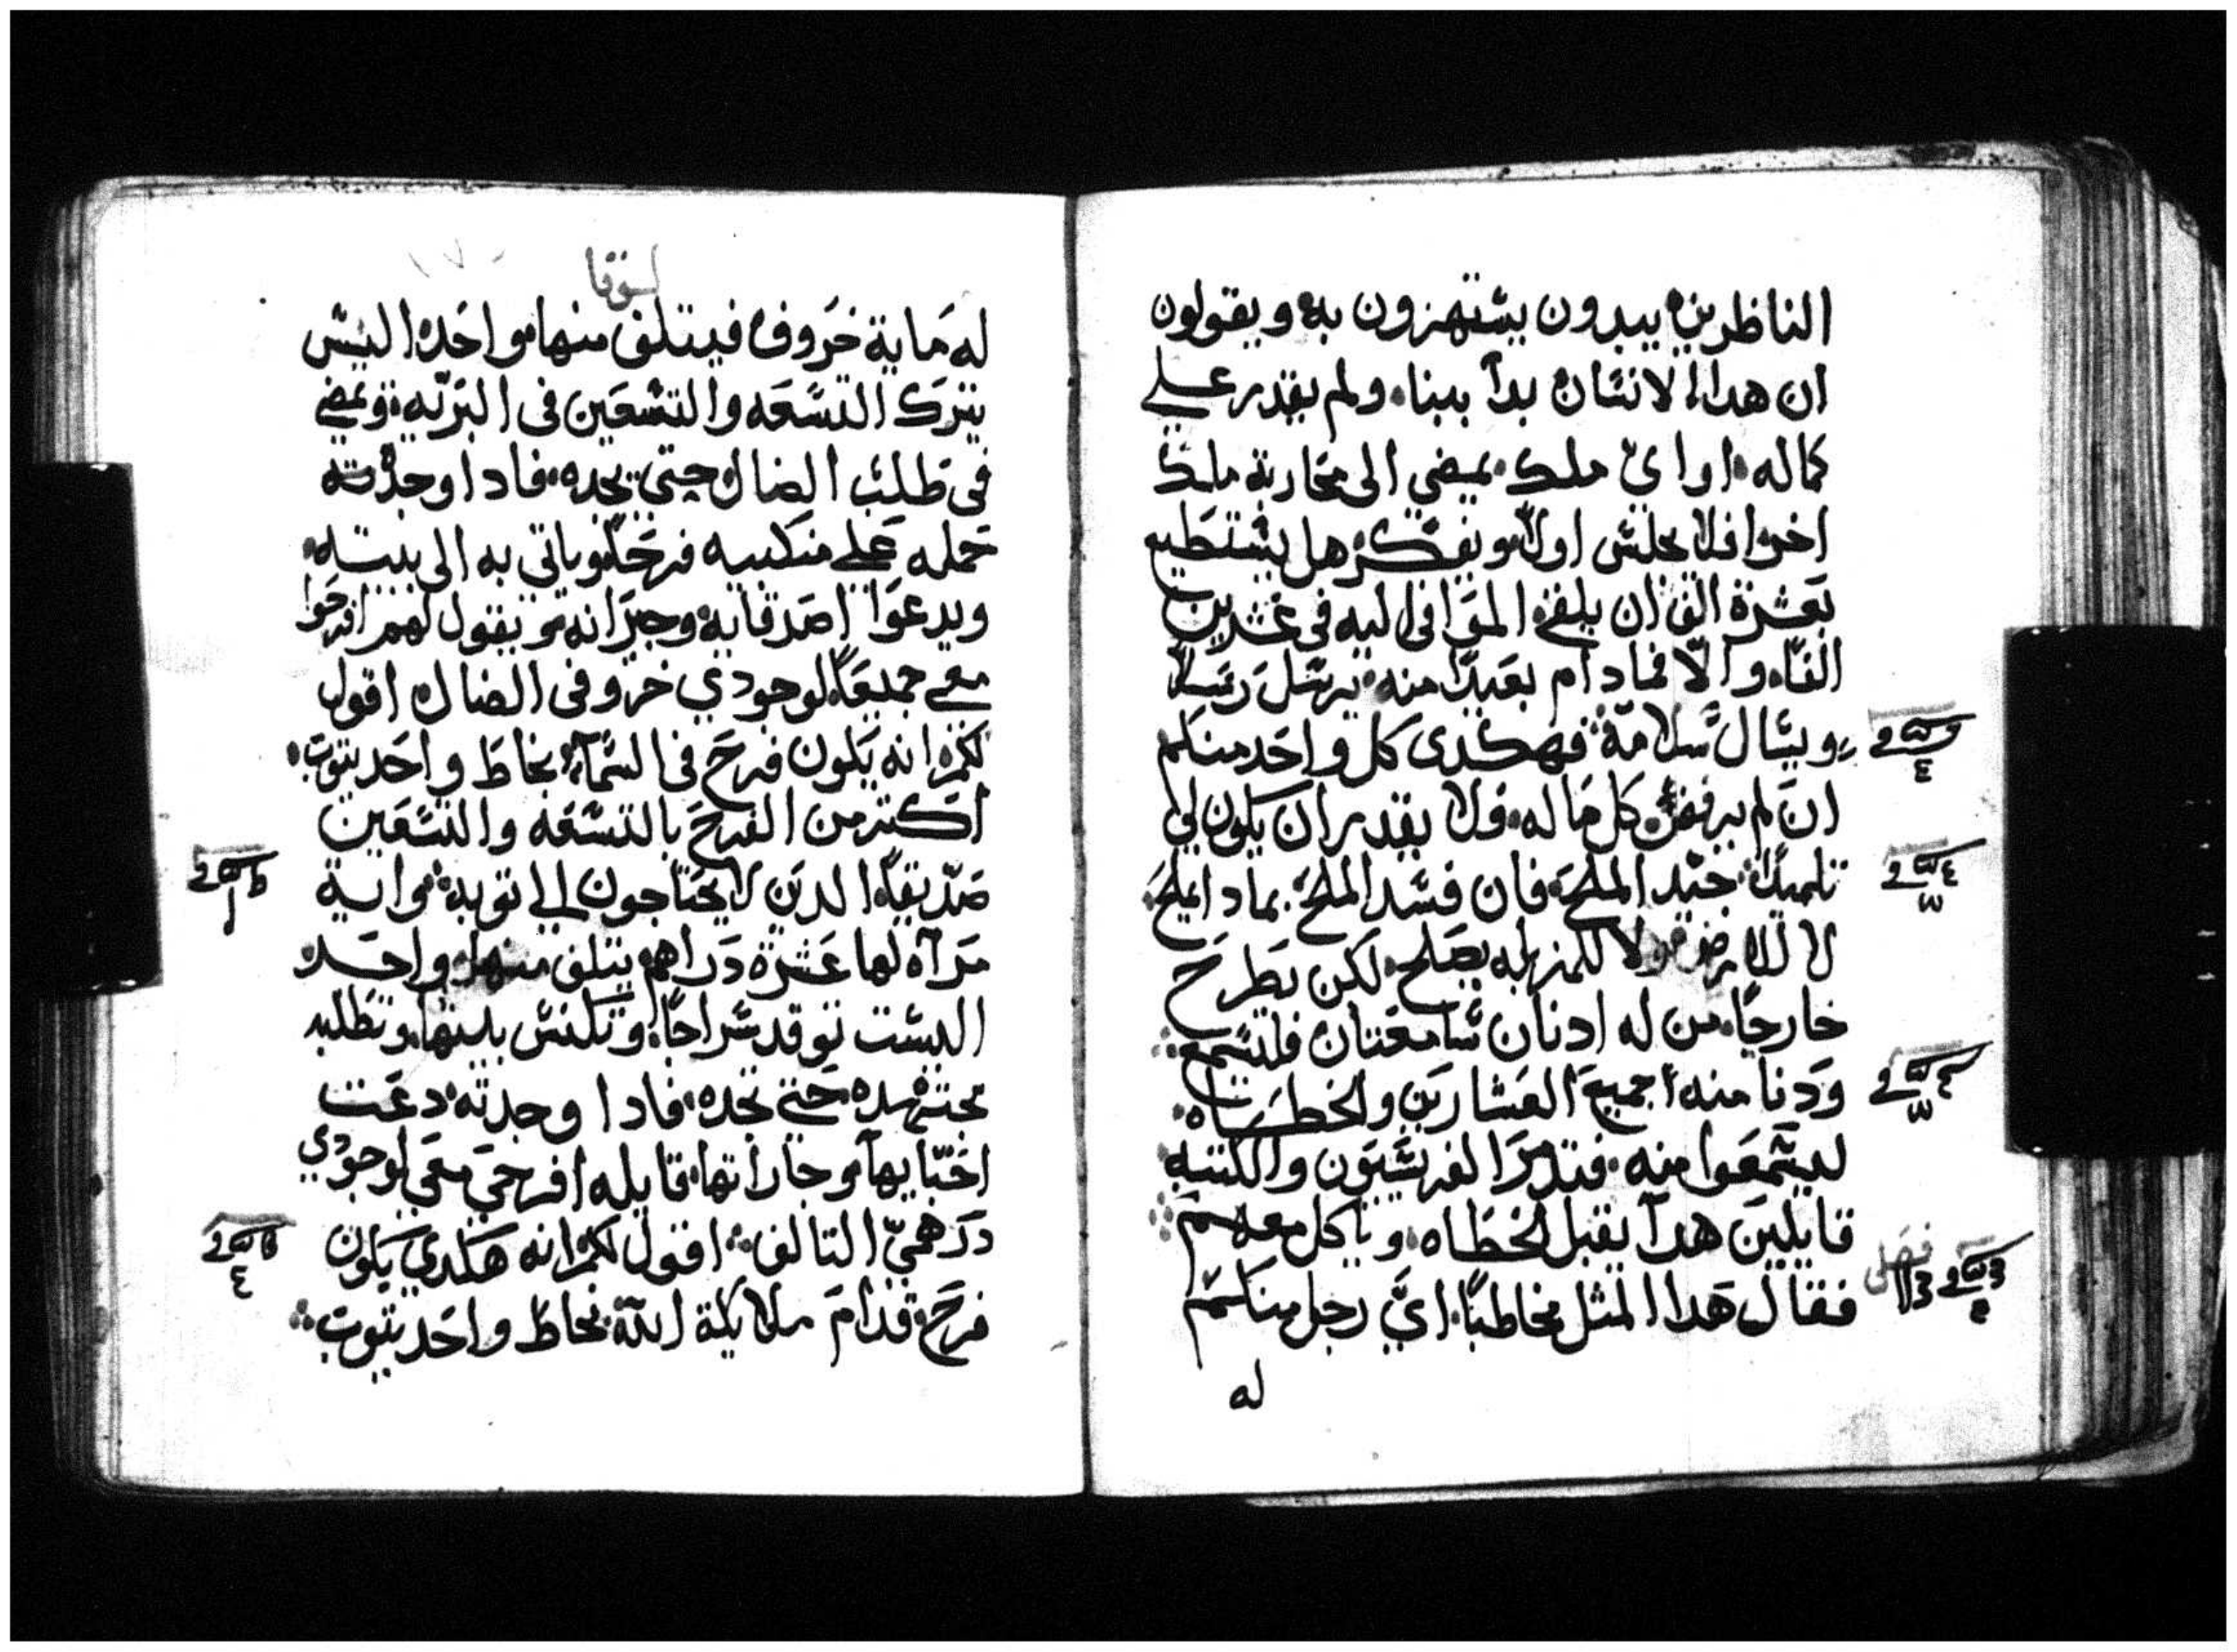 الناظرين يبدون يستهزون به ويقولون
ان هدا الانسان بدا ببنا ولم يقدر علي
كماله او اي ملك يمضي الى محاربة ملك
اخر افلا يجلس اولا ويفكر هل يستطيع
بعشرة الف ان يلقي الموافي اليه في عشرين
الفا والا فمادام بعيدا منه يرسل رسلا
ويسال سلامة فهكدى كل واحد منكم
ان لم يرفض كل ماله فلا يقدر ان يكون لي
تلميدا جيد الملح فان فسد الملح بمادا يملح
لا للارض ولا للمزبله يصلح لكن يطرح
خارجا من له ادنان سامعتان فليسمع
ودنا منه جميع العشارين والخطاه
ليسمعوا منه فتدمر الفريسيون والكتبه
قايلين هدا يقبل الخطاه وياكل معهم
فقال هدا المثل مخاطبا اي رجل منكم
فصل
له
لوقا
له ماية خروف فيتلف منها واحد اليس
يترك التسعه والتسعين في البريه ويمضي
في طلب الضال حتي يجده فادا وجدته
حمله علي منكبيه فرحا وياتي به الى بيته
ويدعوا اصدقايه وجيرانه ويقول لهم افرحوا
معي جميعا لوجودي خروفي الضال اقول
لكم انه يكون فرح في السماء بخاط واحد يتوب
اكتر من الفرح بالتسعه والتسعين
صديقا الدين لا يحتاجون الي توبه واية
مرآه لها عشرة دراهم يتلف منها واحد
اليست توقد سراجا وتكنس بيتها وتطلبه
مجتهده حتي تجده فادا وجدته دعت
احبايها وجاراتها قايله افرحي معي لوجودي
درهمي التالف اقول لكم انه هكدي يكون
فرح قدام ملايكة الله بخاط واحد يتوب